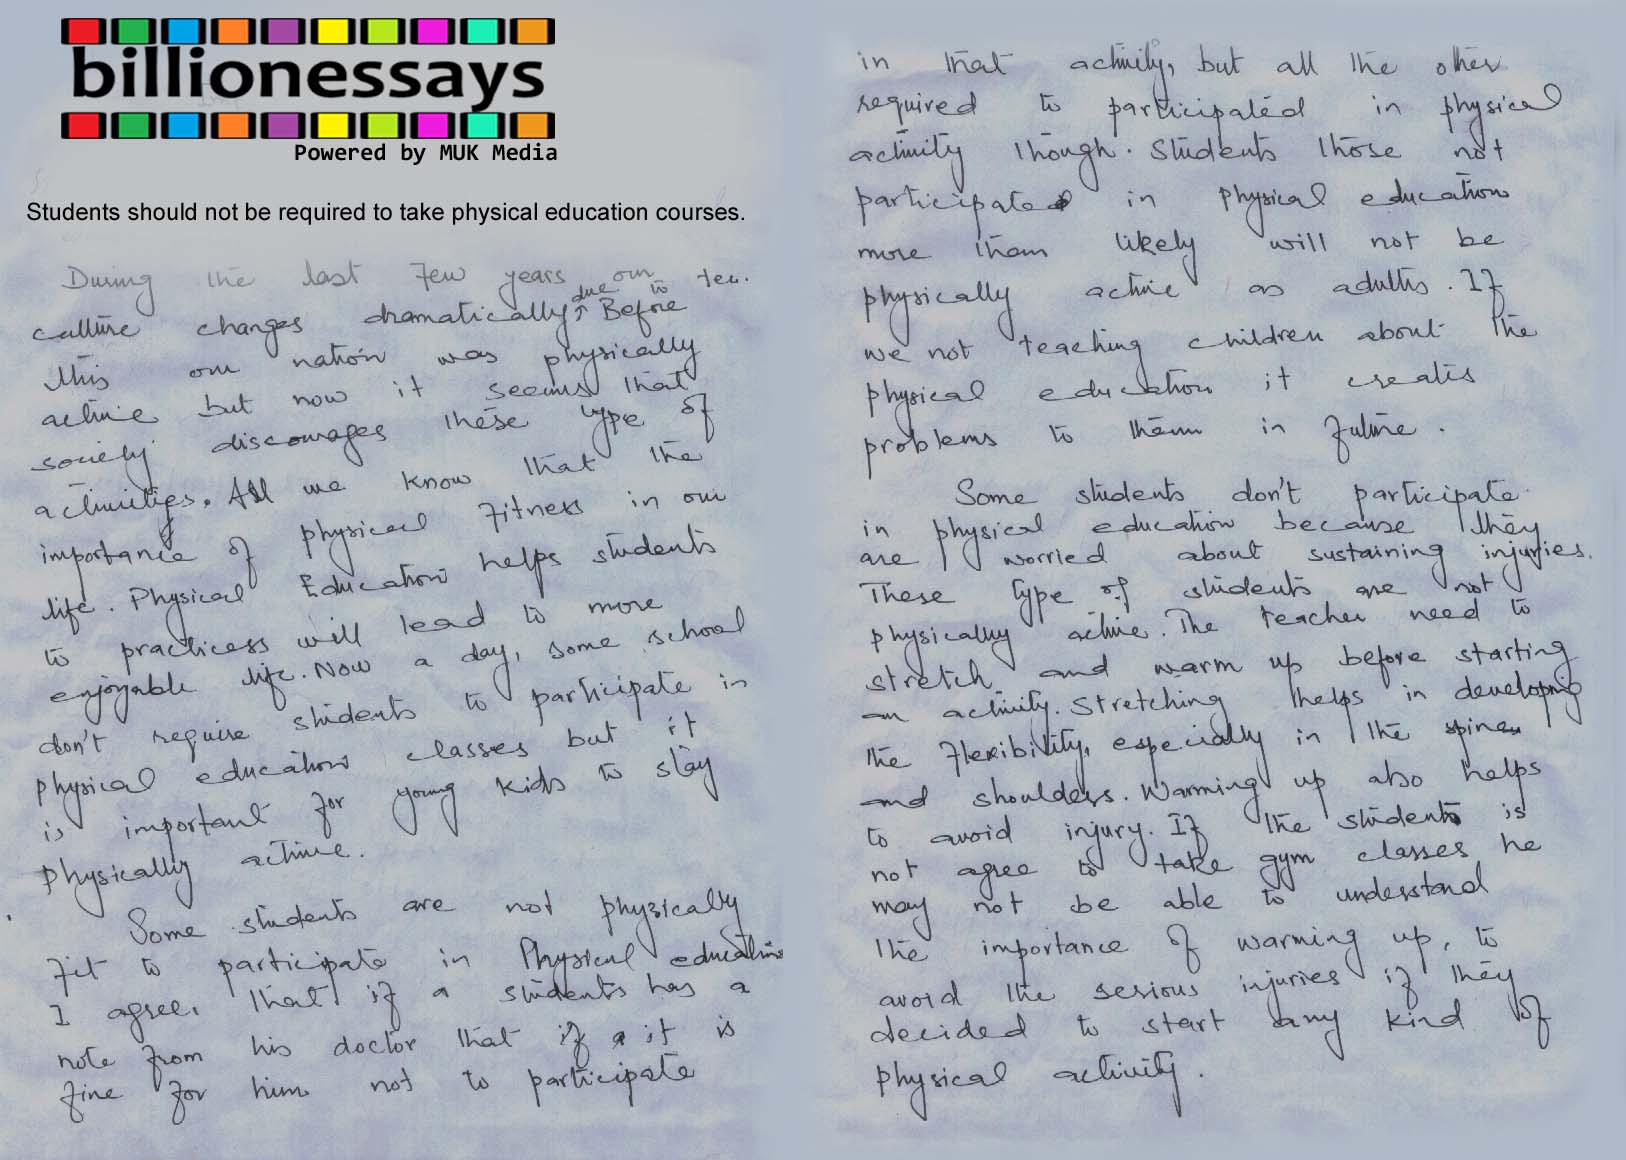 billionessays
Powered by MUK Media
Students should not be required to take physical education courses.
During the last few years our tec.
culture changes dramatically due to Before
this our nation was physically
active but now it seems that
society discourages these type of
activities. All we know that the
importance of physical fitness in our
life. Physical Education helps students
to practicess will lead to more
enjoyable life. Now a day, some school
don't require students to participate in
physical education classes but it
is important for young kids to stay
physically active.
Some students are not physically
fit to participate in Physical education
I agree, that if a students has a
note from his doctor that if it is
fine for him not to participate
in that activity, but all the other
required to participated in physical
activity though. Students those not
participate in physical education
more them likely will not be
physically active as adults. If
we not teaching children about the
physical education it creates
problems to them in future.
Some students don't participate
in physical education because they
are worried about sustaining injuries.
These type of students are not
physically active. The teacher need to
stretch and warm up before starting
an activity. Stretching helps in developing
the flexibility, especially in the spine
and shoulders. Warming up also helps
to avoid injury. If the students is
not agree to take gym classes, he
may not be able to understand
the importance of warming up, to
avoid the serious injuries if they
decided to start any kind of
physical activity.